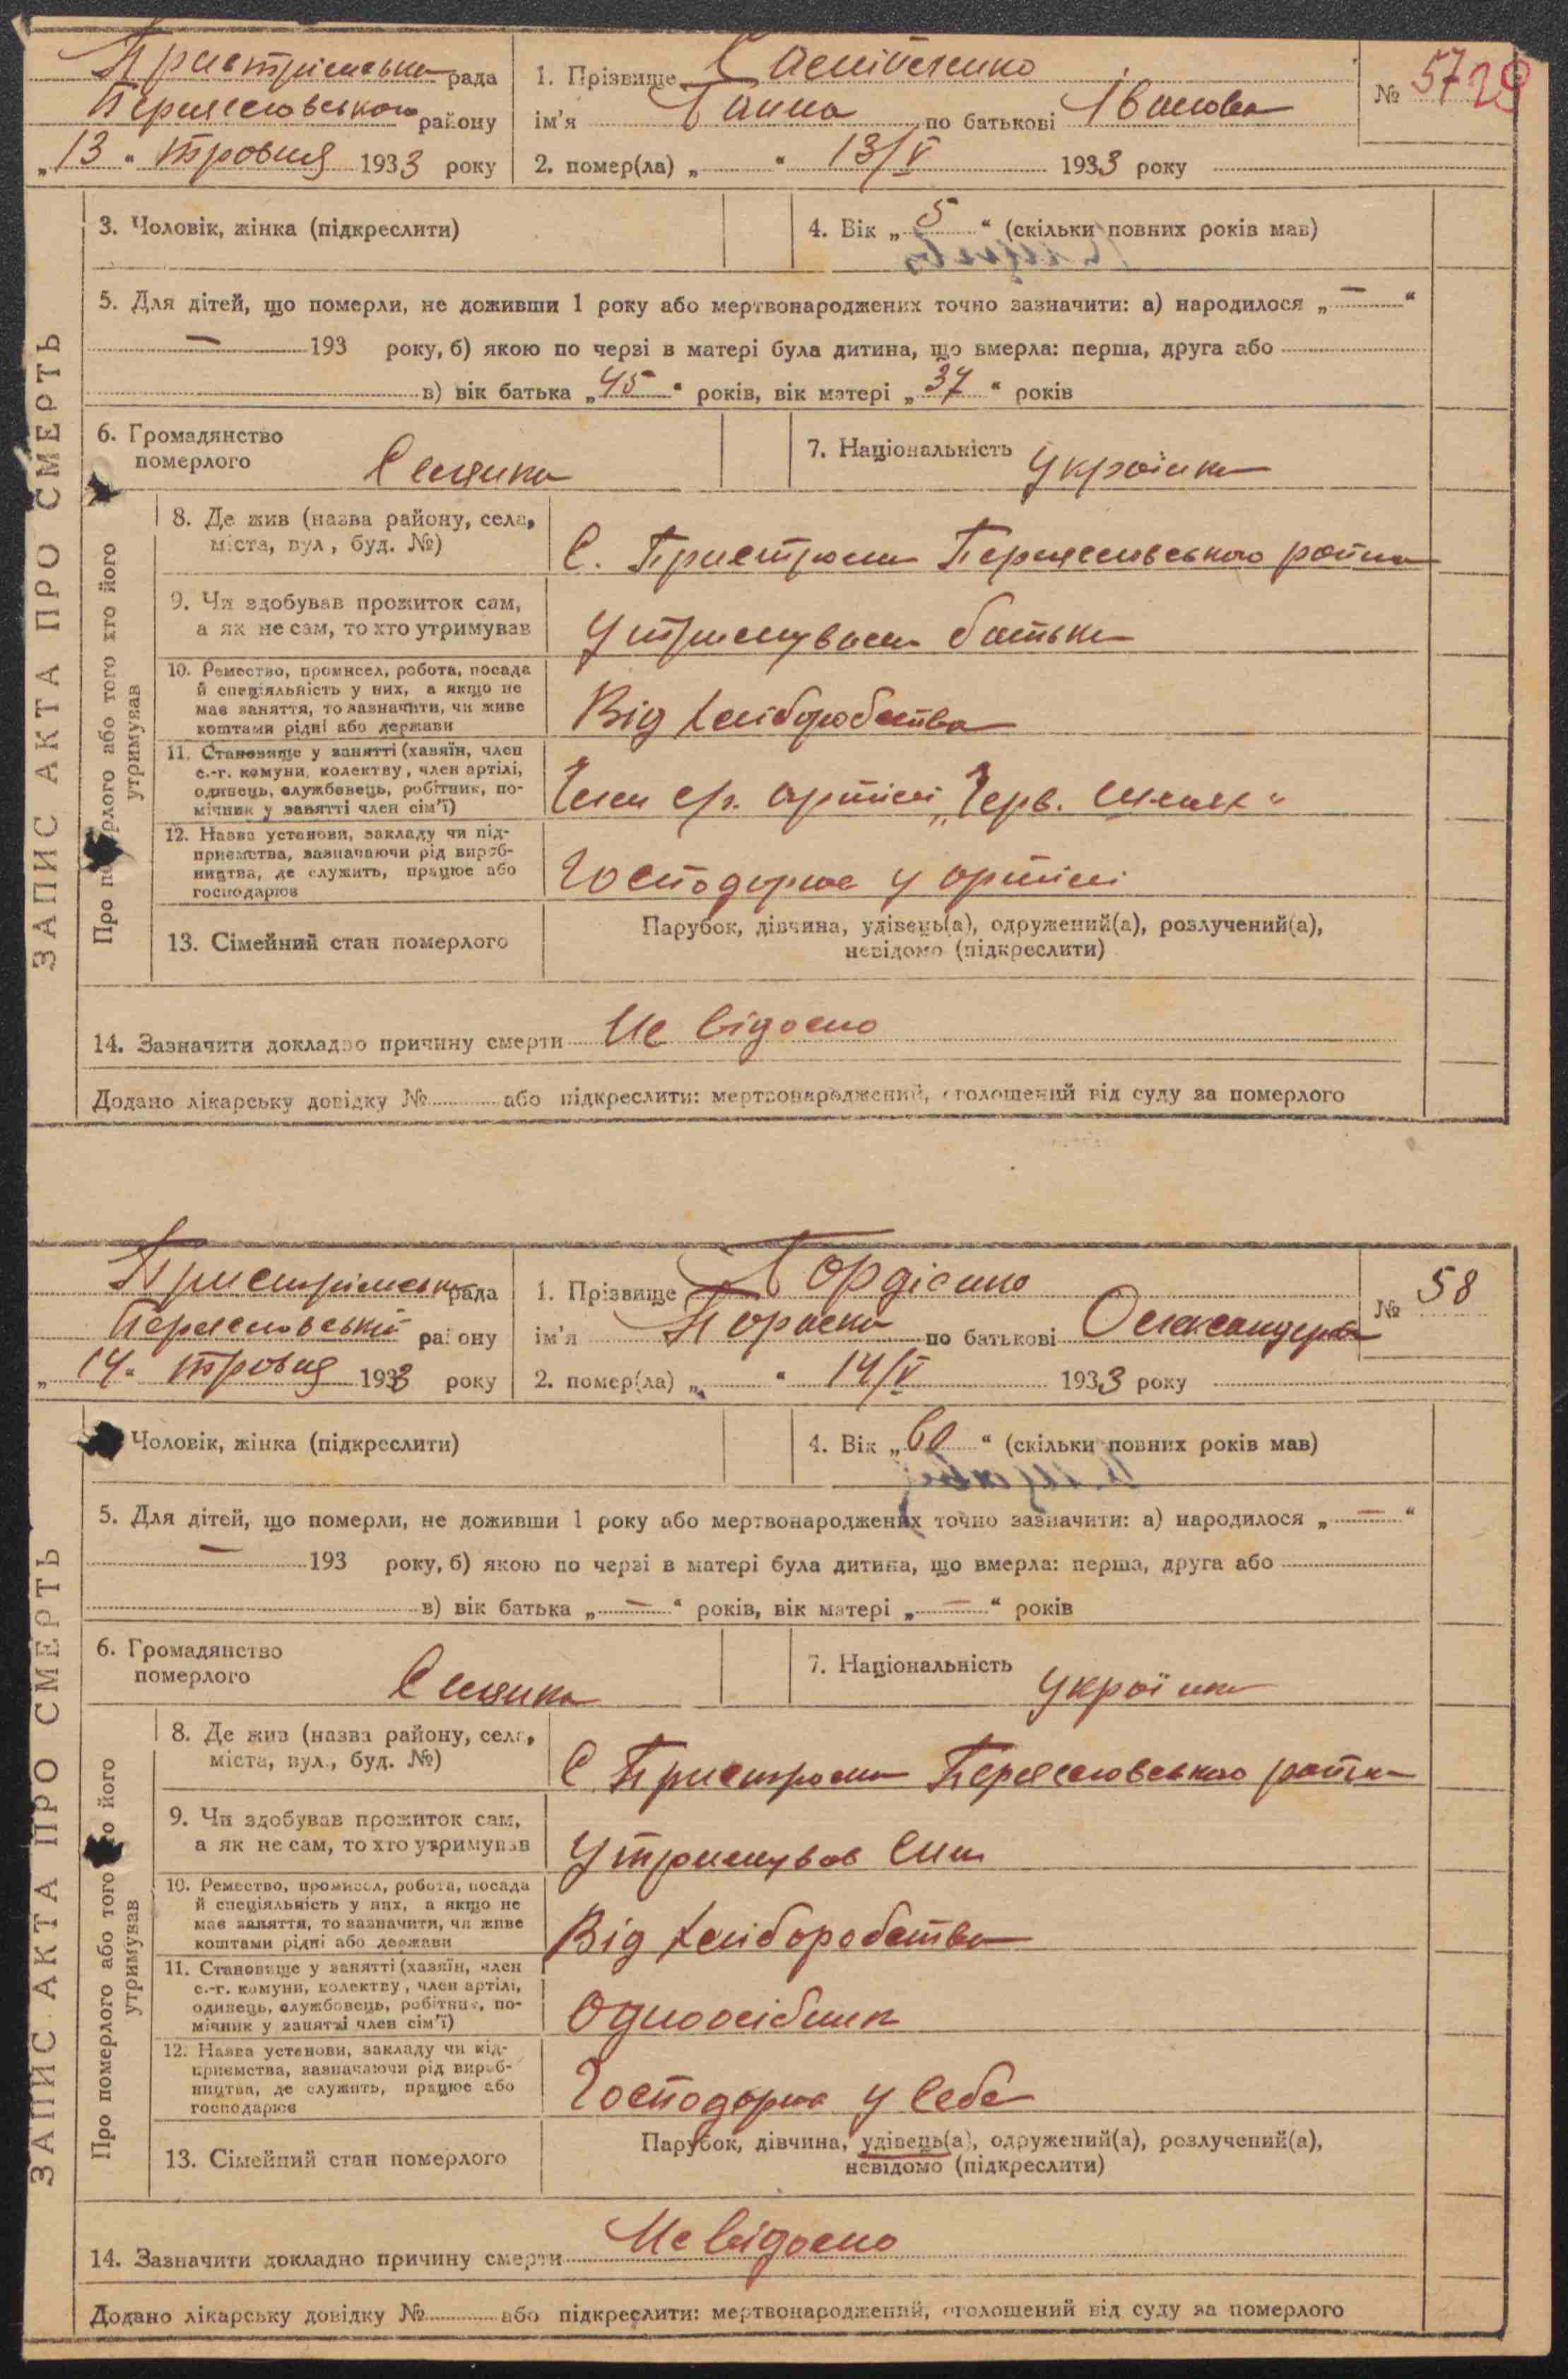 Пристрімська рада
Переяславського району
„13“ травня 1933 року
1. Прізвище
ім'я Ганна по батькові Іванова
2. помер(ла) „ “ 13/V 1933 року
№ 57
29
ЗАПИС АКТА ПРО СМЕРТЬ
3. Чоловік, жінка (підкреслити)
4. Вік „5“ (скільки повних років мав)
5. Для дітей, що померли, не доживши 1 року або мертвонароджених точно зазначити: а) народилося „—“
— 193 року, б) якою по черзі в матері була дитина, що вмерла: перша, друга або
в) вік батька „45“ років, вік матері „37“ років
6. Громадянство
померлого Селянка
7. Національність Українка
Про померлого або того хто його
утримував
8. Де жив (назва району, села,
міста, вул., буд. №)
С. Пристроми Переяславського району
9. Чи здобував прожиток сам,
а як не сам, то хто утримував
Утримував батько
10. Ремество, промисел, робота, посада
й спеціяльність у них, а якщо не
має заняття, то зазначити, чи живе
коштами рідні або держави
Від хліборобства
11. Становище у занятті (хазяїн, член
с.-г. комуни, колективу, член артілі,
одинець, службовець, робітник, по-
мічник у занятті член сім'ї)
Член с/г. артілі „Черв. Шлях“
12. Назва установи, закладу чи під-
приємства, зазначаючи рід вироб-
ництва, де служить, працює або
господарює
Господарює у артілі
13. Сімейний стан померлого
Парубок, дівчина, удівець(а), одружений(а), розлучений(а),
невідомо (підкреслити)
14. Зазначити докладно причину смерти Не відомо
Додано лікарську довідку № або підкреслити: мертвонароджений, оголошений від суду за померлого
Пристрімська рада
Переяславській району
„14“ травня 1933 року
1. Прізвище Гордієнко
ім'я Параска по батькові Олександрова
2. помер(ла) „ “ 14/V 1933 року
№ 58
ЗАПИС АКТА ПРО СМЕРТЬ
Чоловік, жінка (підкреслити)
4. Вік „60“ (скільки повних років мав)
5. Для дітей, що померли, не доживши 1 року або мертвонароджених точно зазначити: а) народилося „—“
— 193 року, б) якою по черзі в матері була дитина, що вмерла: перша, друга або
в) вік батька „—“ років, вік матері „—“ років
6. Громадянство
померлого Селянка
7. Національність Українка
Про померлого або того хто його
утримував
8. Де жив (назва району, села,
міста, вул., буд. №)
С Пристроми Переяславського району
9. Чи здобував прожиток сам,
а як не сам, то хто утримував
Утримував син
10. Ремество, промисел, робота, посада
й спеціяльність у них, а якщо не
має заняття, то зазначити, чи живе
коштами рідні або держави
Від хліборобства
11. Становище у занятті (хазяїн, член
с.-г. комуни, колективу, член артілі,
одинець, службовець, робітник, по-
мічник у занятті член сім'ї)
Одноосібник
12. Назва установи, закладу чи під-
приємства, зазначаючи рід вироб-
ництва, де служить, працює або
господарює
Господарює у себе
13. Сімейний стан померлого
Парубок, дівчина, удівець(а), одружений(а), розлучений(а),
невідомо (підкреслити)
14. Зазначити докладно причину смерти Не відомо
Додано лікарську довідку № або підкреслити: мертвонароджений, оголошений від суду за померлого